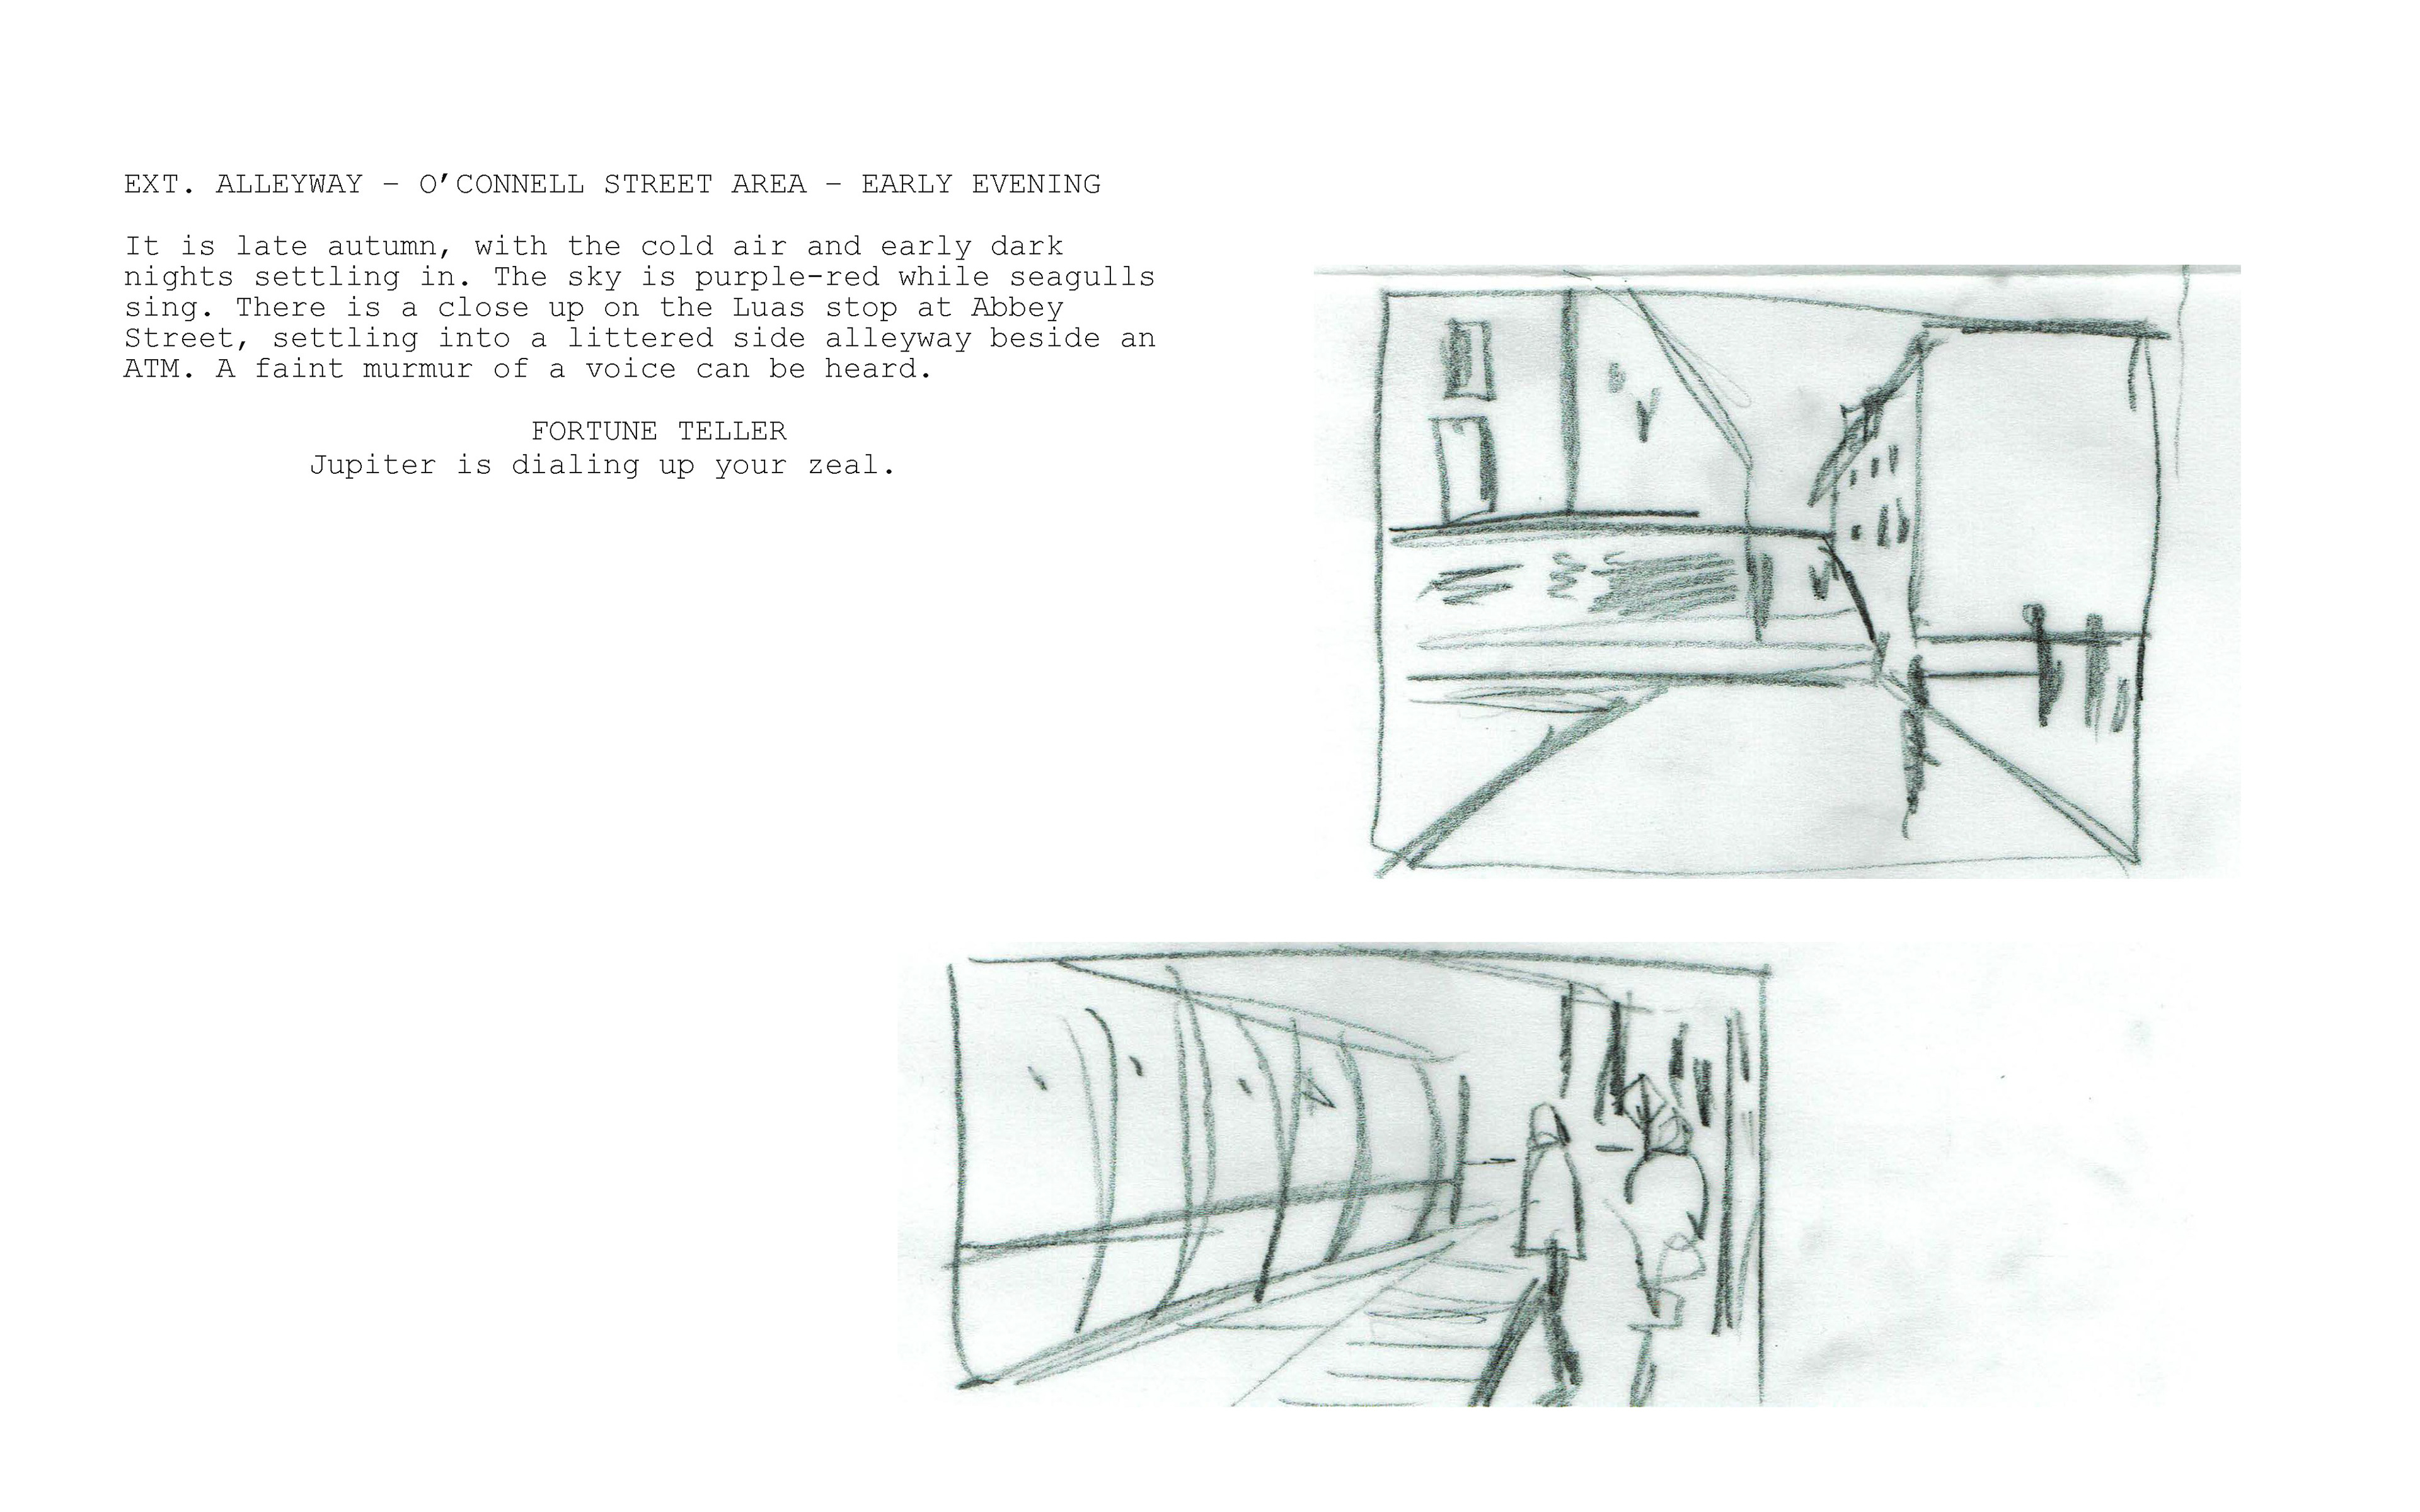 EXT. ALLEYWAY – O’CONNELL STREET AREA – EARLY EVENING
It is late autumn, with the cold air and early dark
nights settling in. The sky is purple-red while seagulls
sing. There is a close up on the Luas stop at Abbey
Street, settling into a littered side alleyway beside an
ATM. A faint murmur of a voice can be heard.
FORTUNE TELLER
Jupiter is dialing up your zeal.